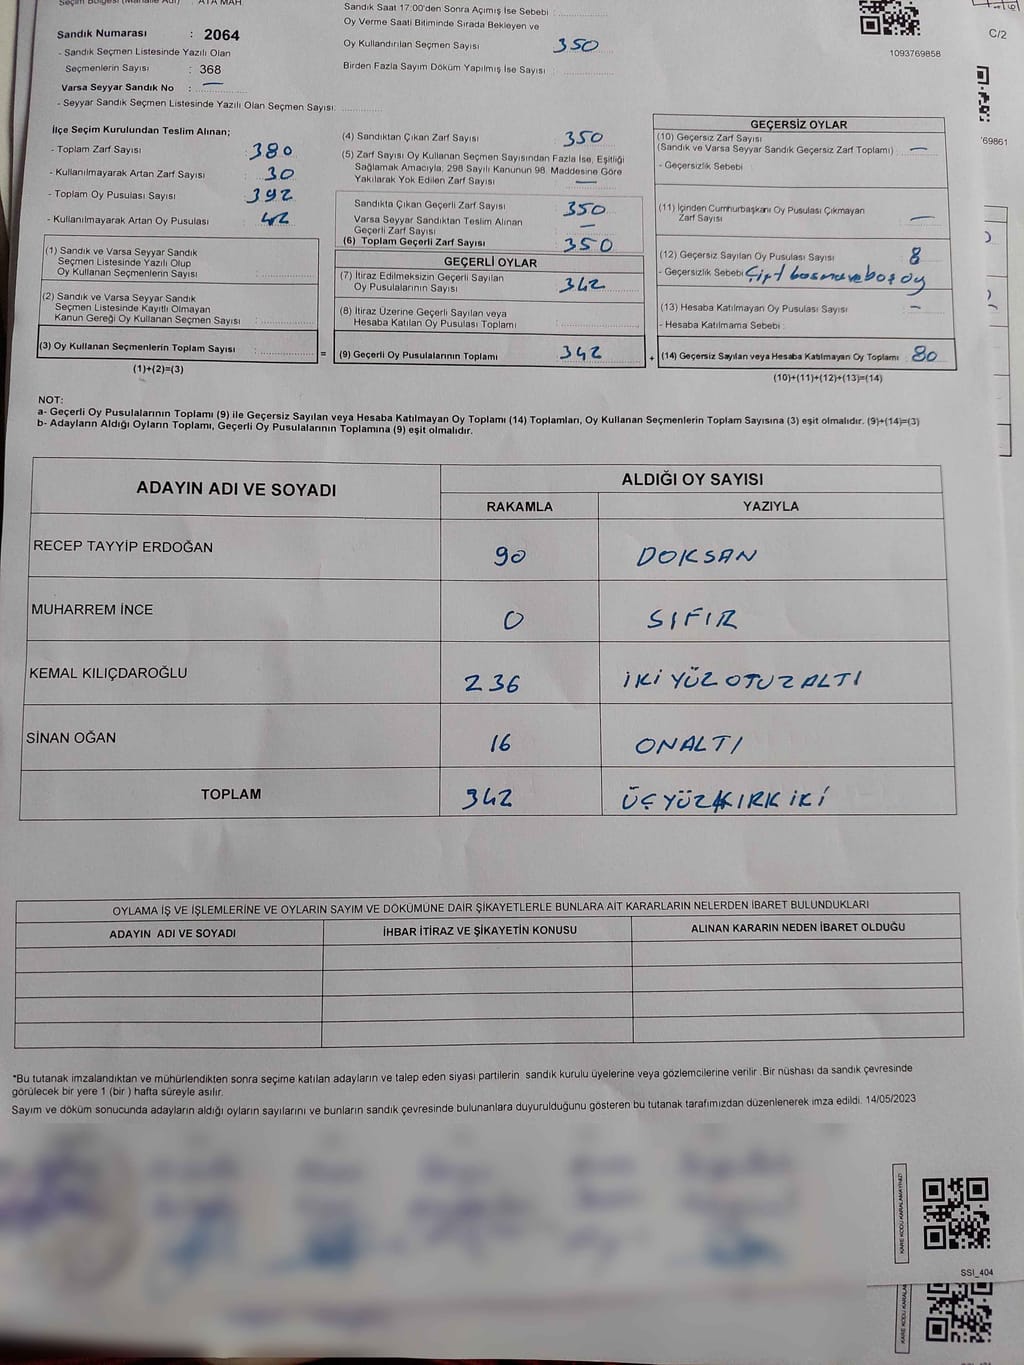 Seçim Bölgesi (Mahalle Adı) : ATA MAH
Sandık Numarası : 2064
- Sandık Seçmen Listesinde Yazılı Olan
Seçmenlerin Sayısı : 368
Varsa Seyyar Sandık No : —
- Seyyar Sandık Seçmen Listesinde Yazılı Olan Seçmen Sayısı:
Sandık Saat 17:00'den Sonra Açımış İse Sebebi :
Oy Verme Saati Bitiminde Sırada Bekleyen ve
Oy Kullandırılan Seçmen Sayısı 350
Birden Fazla Sayım Döküm Yapılmış İse Sayısı :
1093769858
C/2
69861
İlçe Seçim Kurulundan Teslim Alınan;
- Toplam Zarf Sayısı : 380
- Kullanılmayarak Artan Zarf Sayısı : 30
- Toplam Oy Pusulası Sayısı : 392
- Kullanılmayarak Artan Oy Pusulası : 42
(1) Sandık ve Varsa Seyyar Sandık
Seçmen Listesinde Yazılı Olup
Oy Kullanan Seçmenlerin Sayısı :
(2) Sandık ve Varsa Seyyar Sandık
Seçmen Listesinde Kayıtlı Olmayan
Kanun Gereği Oy Kullanan Seçmen Sayısı :
(3) Oy Kullanan Seçmenlerin Toplam Sayısı :
(1)+(2)=(3)
=
(4) Sandıktan Çıkan Zarf Sayısı 350
(5) Zarf Sayısı Oy Kullanan Seçmen Sayısından Fazla İse, Eşitliği
Sağlamak Amacıyla; 298 Sayılı Kanunun 98. Maddesine Göre
Yakılarak Yok Edilen Zarf Sayısı —
Sandıkta Çıkan Geçerli Zarf Sayısı 350
Varsa Seyyar Sandıktan Teslim Alınan
Geçerli Zarf Sayısı —
(6) Toplam Geçerli Zarf Sayısı 350
GEÇERLİ OYLAR
(7) İtiraz Edilmeksizin Geçerli Sayılan
Oy Pusulalarının Sayısı 342
(8) İtiraz Üzerine Geçerli Sayılan veya
Hesaba Katılan Oy Pusulası Toplamı
(9) Geçerli Oy Pusulalarının Toplamı 342
+
GEÇERSİZ OYLAR
(10) Geçersiz Zarf Sayısı
(Sandık ve Varsa Seyyar Sandık Geçersiz Zarf Toplamı) : —
- Geçersizlik Sebebi :
(11) İçinden Cumhurbaşkanı Oy Pusulası Çıkmayan
Zarf Sayısı —
(12) Geçersiz Sayılan Oy Pusulası Sayısı 8
- Geçersizlik Sebebi Çift basma ve boş oy
(13) Hesaba Katılmayan Oy Pusulası Sayısı —
- Hesaba Katılmama Sebebi :
(14) Geçersiz Sayılan veya Hesaba Katılmayan Oy Toplamı 80
(10)+(11)+(12)+(13)=(14)
NOT:
a- Geçerli Oy Pusulalarının Toplamı (9) ile Geçersiz Sayılan veya Hesaba Katılmayan Oy Toplamı (14) Toplamları, Oy Kullanan Seçmenlerin Toplam Sayısına (3) eşit olmalıdır. (9)+(14)=(3)
b- Adayların Aldığı Oyların Toplamı, Geçerli Oy Pusulalarının Toplamına (9) eşit olmalıdır.
ADAYIN ADI VE SOYADI
ALDIĞI OY SAYISI
RAKAMLA YAZIYLA
RECEP TAYYİP ERDOĞAN 90 DOKSAN
MUHARREM İNCE 0 SIFIR
KEMAL KILIÇDAROĞLU 236 İKİ YÜZ OTUZ ALTI
SİNAN OĞAN 16 ONALTI
TOPLAM 342 ÜÇ YÜZ KIRK İKİ
OYLAMA İŞ VE İŞLEMLERİNE VE OYLARIN SAYIM VE DÖKÜMÜNE DAİR ŞİKAYETLERLE BUNLARA AİT KARARLARIN NELERDEN İBARET BULUNDUKLARI
ADAYIN ADI VE SOYADI İHBAR İTİRAZ VE ŞİKAYETİN KONUSU ALINAN KARARIN NEDEN İBARET OLDUĞU
*Bu tutanak imzalandıktan ve mühürlendikten sonra seçime katılan adayların ve talep eden siyasi partilerin sandık kurulu üyelerine veya gözlemcilerine verilir .Bir nüshası da sandık çevresinde
görülecek bir yere 1 (bir ) hafta süreyle asılır.
Sayım ve döküm sonucunda adayların aldığı oyların sayılarını ve bunların sandık çevresinde bulunanlara duyurulduğunu gösteren bu tutanak tarafımızdan düzenlenerek imza edildi. 14/05/2023
KARE KODU KARALAMAYINIZ!
SSİ_404
KARE KODU KARALA